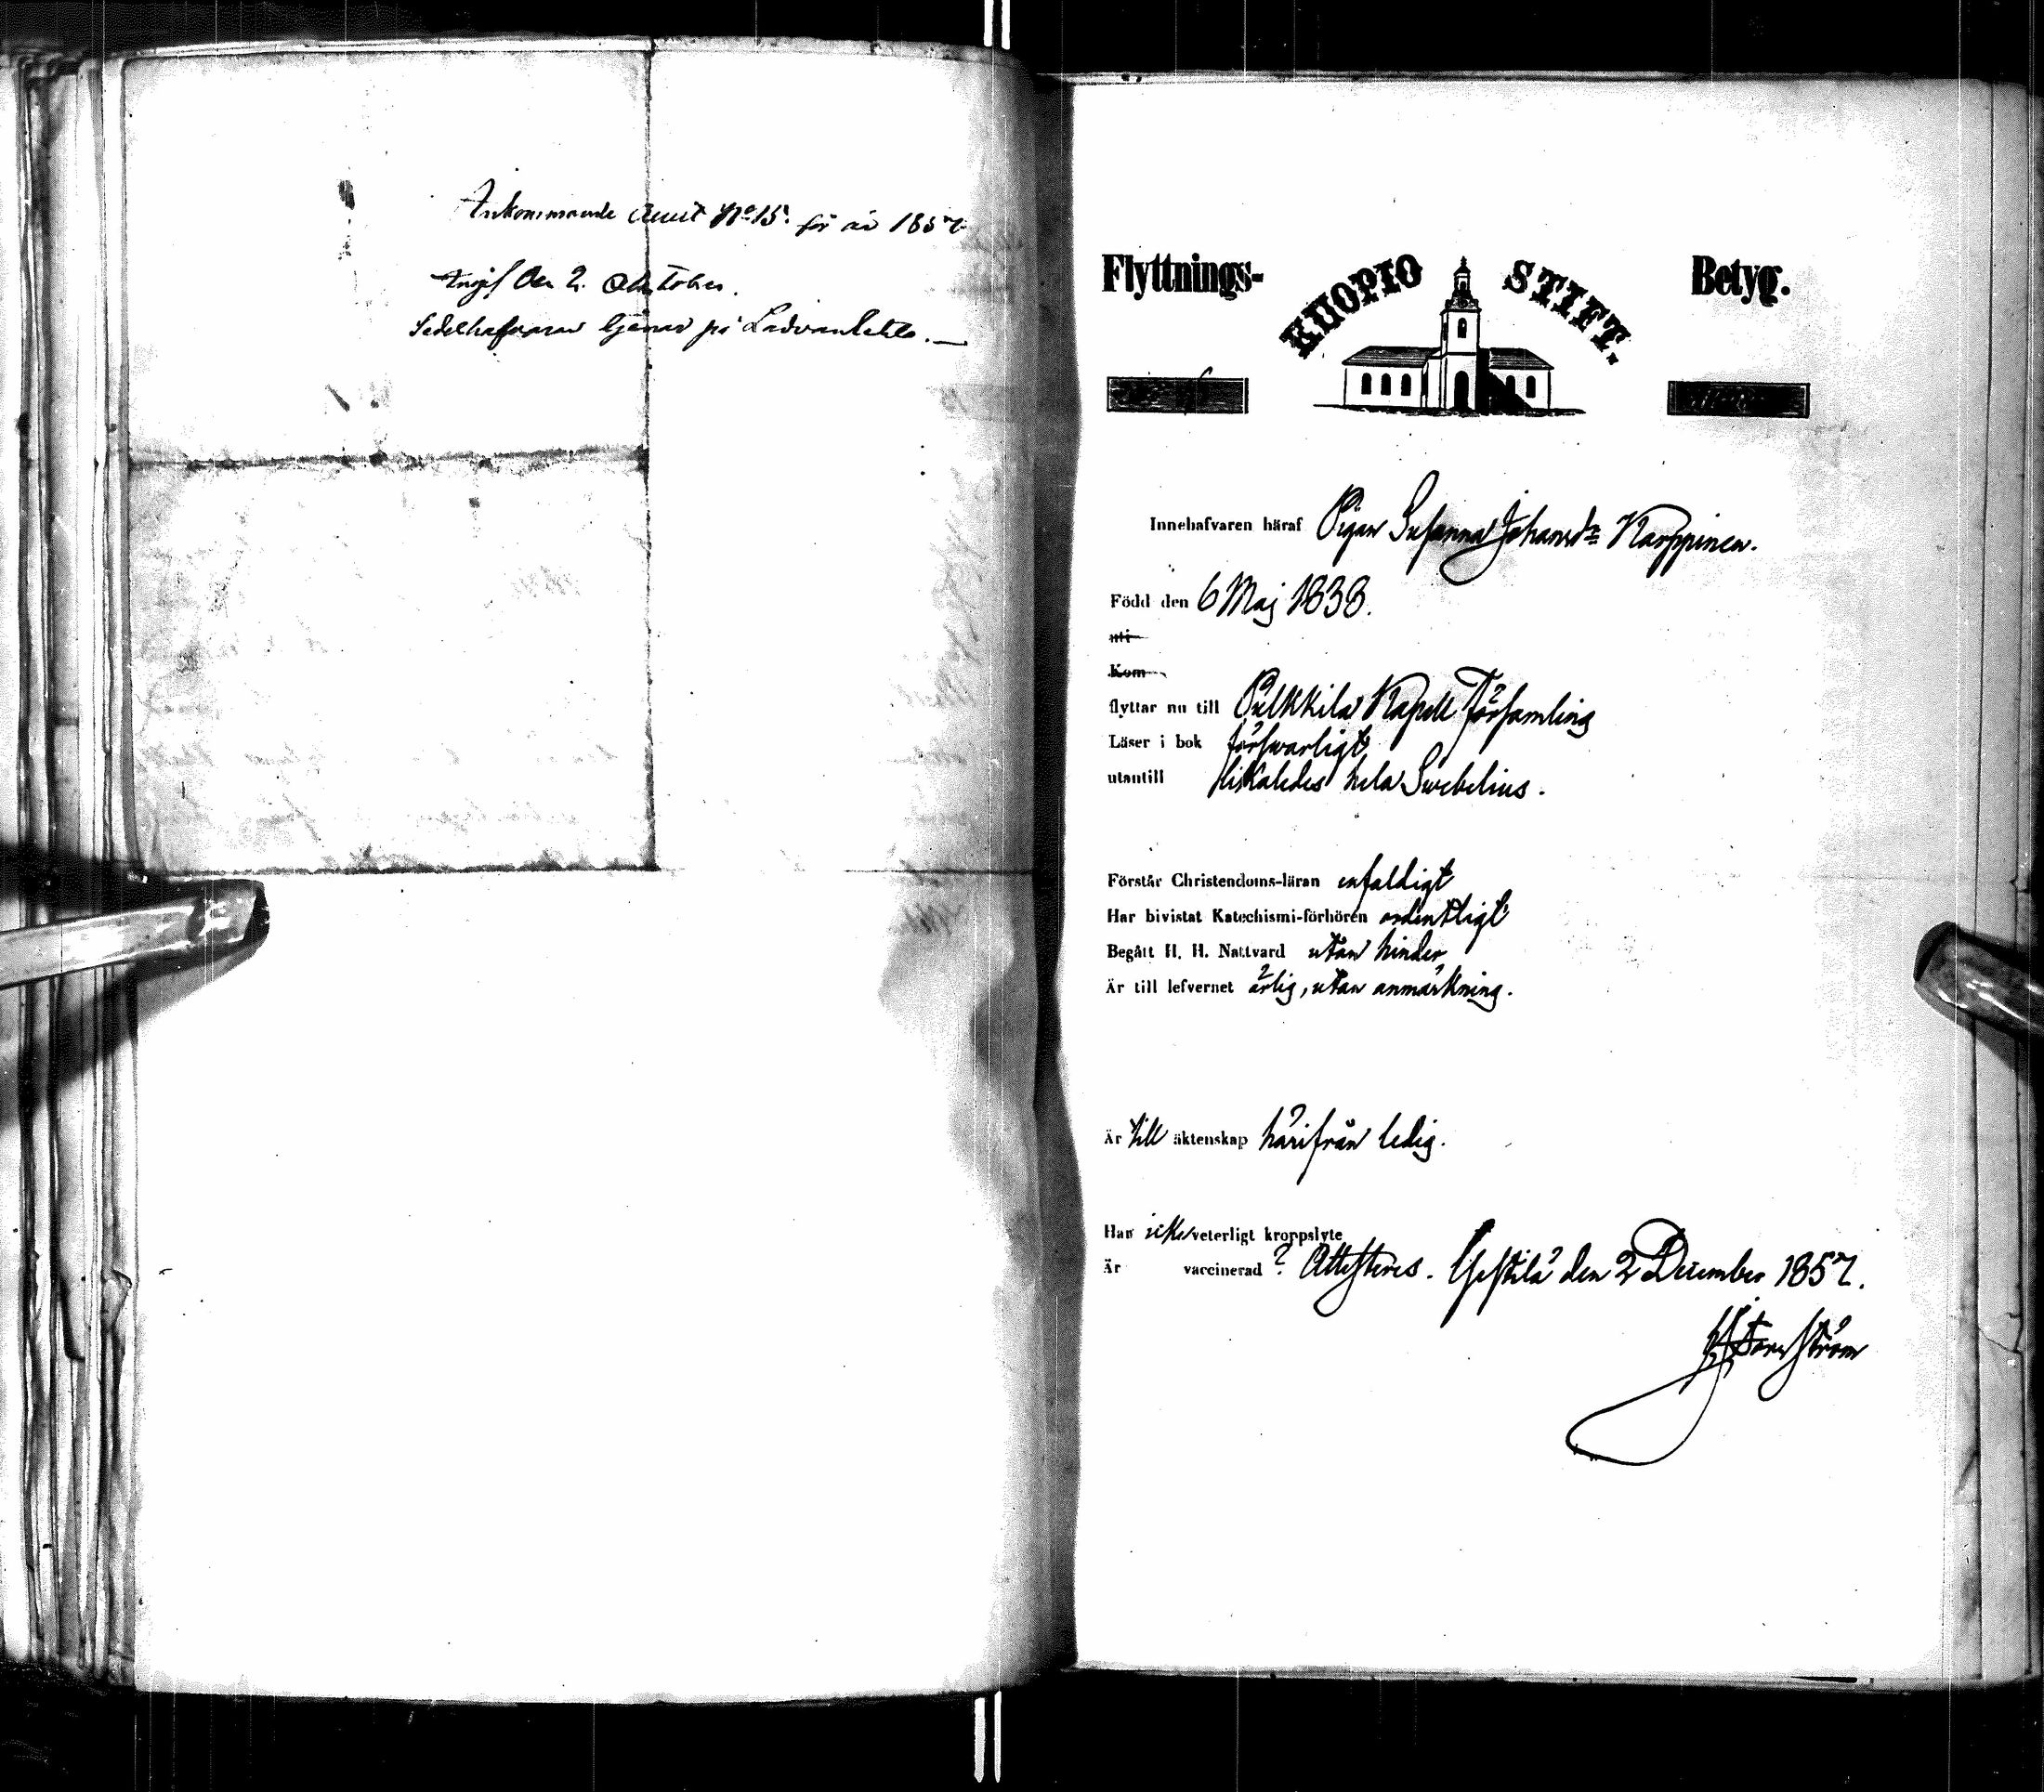 Ankommande attest No 15. för år 1857
den 2. Oktober.
Sedelhafvaren tjenar på
Flyttnings- KUOPIO STIFT. Betyg.
Innehafvaren häraf Pigan Susanna Johansdr Karppinen.
Född den 6 Maj 1838.
uti
Kom
flyttar nu till Pulkkila Kapell Församling
Läser i bok försvarligt
utantill likaledes hela Swebelius.
Förstår Christendoms-läran enfaldigt
Har bivistat Katechismi-förhören ordentligt
Begått H. H. Nattvard utan hinder
Är till lefvernet ärlig, utan anmärkning.
Är till äktenskap härifrån ledig.
Har icke veterligt kroppslyte
Är vaccinerad? Attesteres. Gestilä den 2 December 1857.